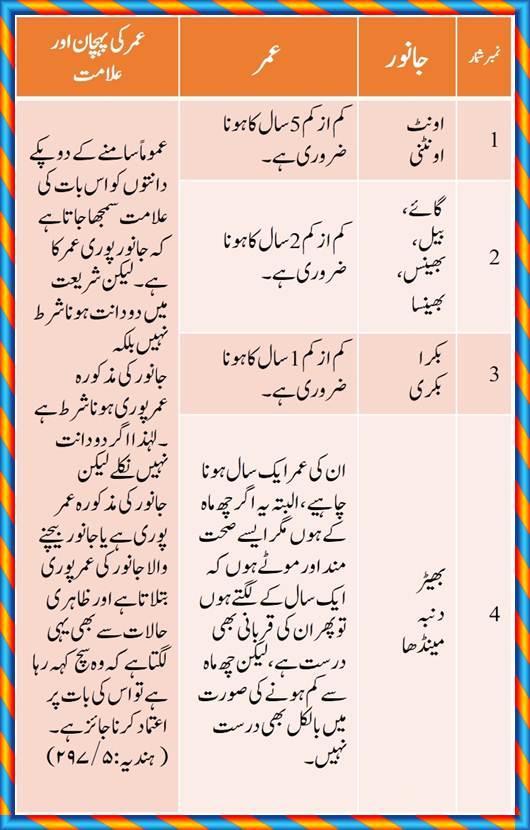 نمبر شمار
جانور
عمر
عمر کی پہچان اور
علامت
1
اونٹ
اونٹنی
کم از کم 5 سال کا ہونا
ضروری ہے۔
2
گائے،
بیل،
بھینس،
بھینسا
کم از کم 2 سال کا ہونا
ضروری ہے۔
3
بکرا
بکری
کم از کم 1 سال کا ہونا
ضروری ہے۔
4
بھیڑ
دنبہ
مینڈھا
ان کی عمر ایک سال ہونا
چاہیے، البتہ یہ اگر چھ ماہ
کے ہوں مگر ایسے صحت
مند اور موٹے ہوں کہ
ایک سال کے لگتے ہوں
تو پھر ان کی قربانی بھی
درست ہے، لیکن چھ ماہ
سے کم ہونے کی صورت
میں بالکل بھی درست
نہیں۔
عموماً سامنے کے دو پکے
دانتوں کو اس بات کی
علامت سمجھا جاتا ہے
کہ جانور پوری عمر کا
ہے۔ لیکن شریعت
میں دو دانت ہونا شرط
نہیں بلکہ
جانور کی مذکورہ
عمر پوری ہونا شرط ہے
۔ لہذا اگر دو دانت
نہیں نکلے لیکن
جانور کی مذکورہ عمر
پوری ہے یا جانور بیچنے
والا جانور کی عمر پوری
بتلاتا ہے اور ظاہری
حالات سے بھی یہی
لگتا ہے کہ وہ سچ کہہ رہا
ہے تو اس کی بات پر
اعتماد کرنا جائز ہے۔
( ہندیہ: ۵/ ۲۹۷)